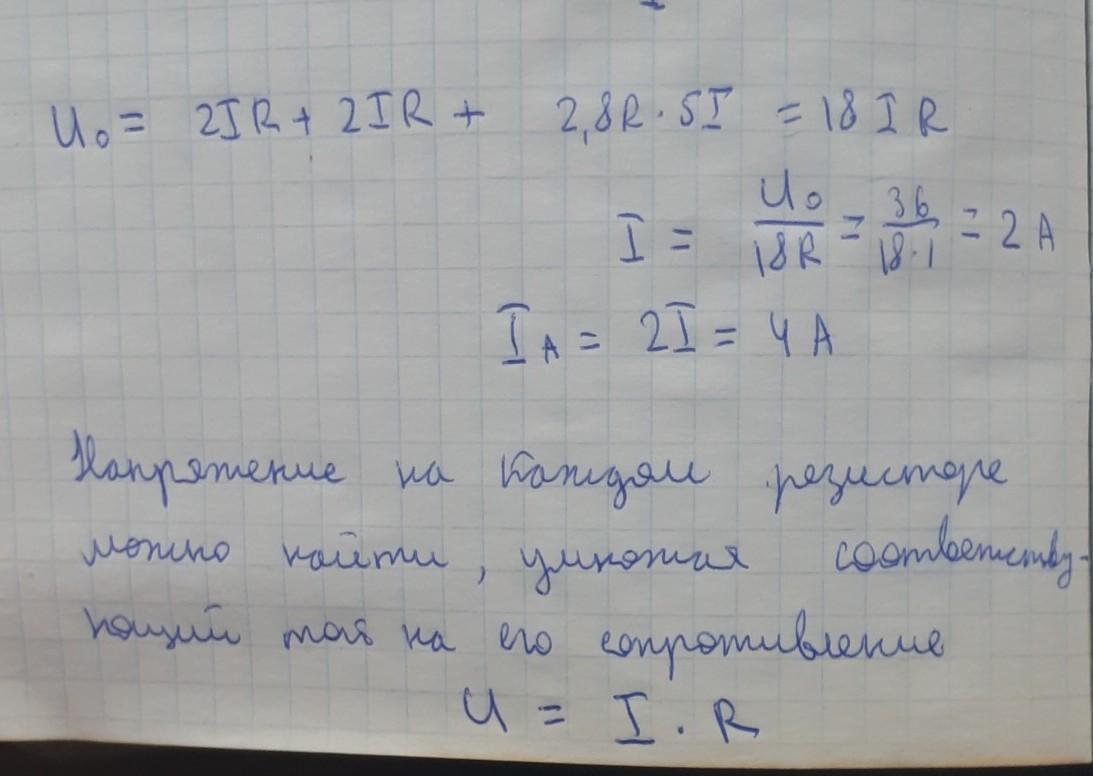 U₀ = 2IR + 2IR + 2,8R · 5I = 18IR
I = U₀/18R = 36/18·1 = 2 А
I_A = 2I = 4 А
Напряжение на каждом резисторе
можно найти, умножая соответству-
ющий ток на его сопротивление
U = I · R